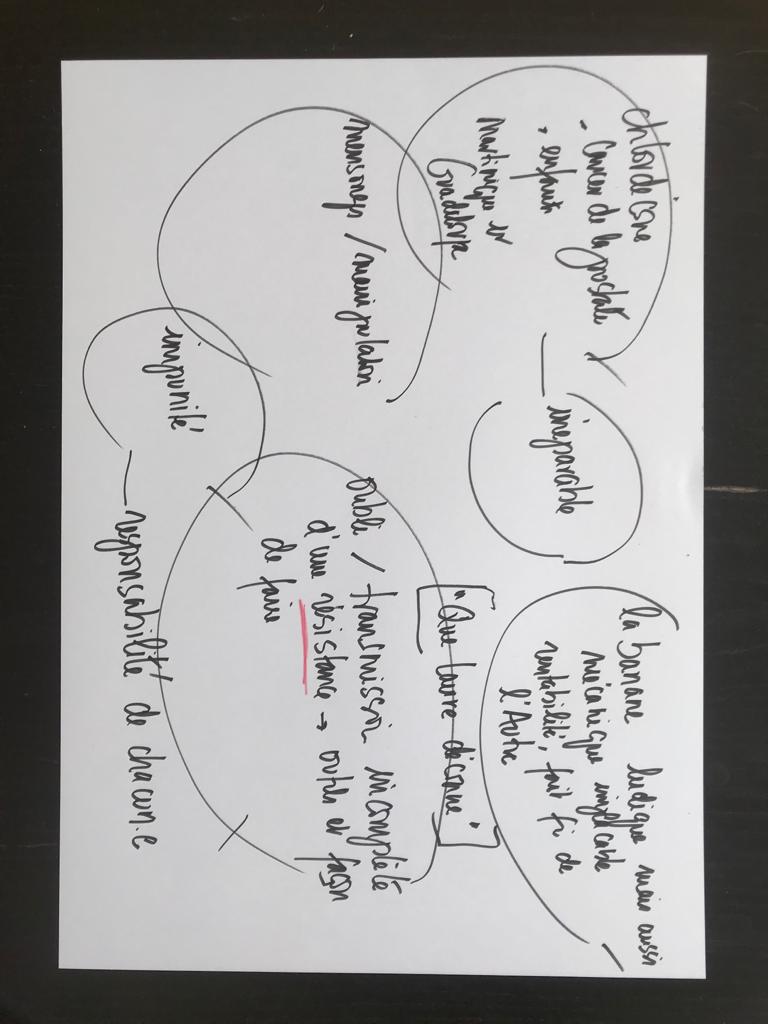 chlordécone
- Cancer de la prostate
- enfants
Martinique et
Guadeloupe
mensonges / manipulation
impunité
irréparable
la banane ludique mais aussi
mécanique implacable
rentabilité, fait fi de
l'Autre
"Que
oubli / transmission incomplète
d'une résistance → outils et façon
de faire
— responsabilité de chacun.e